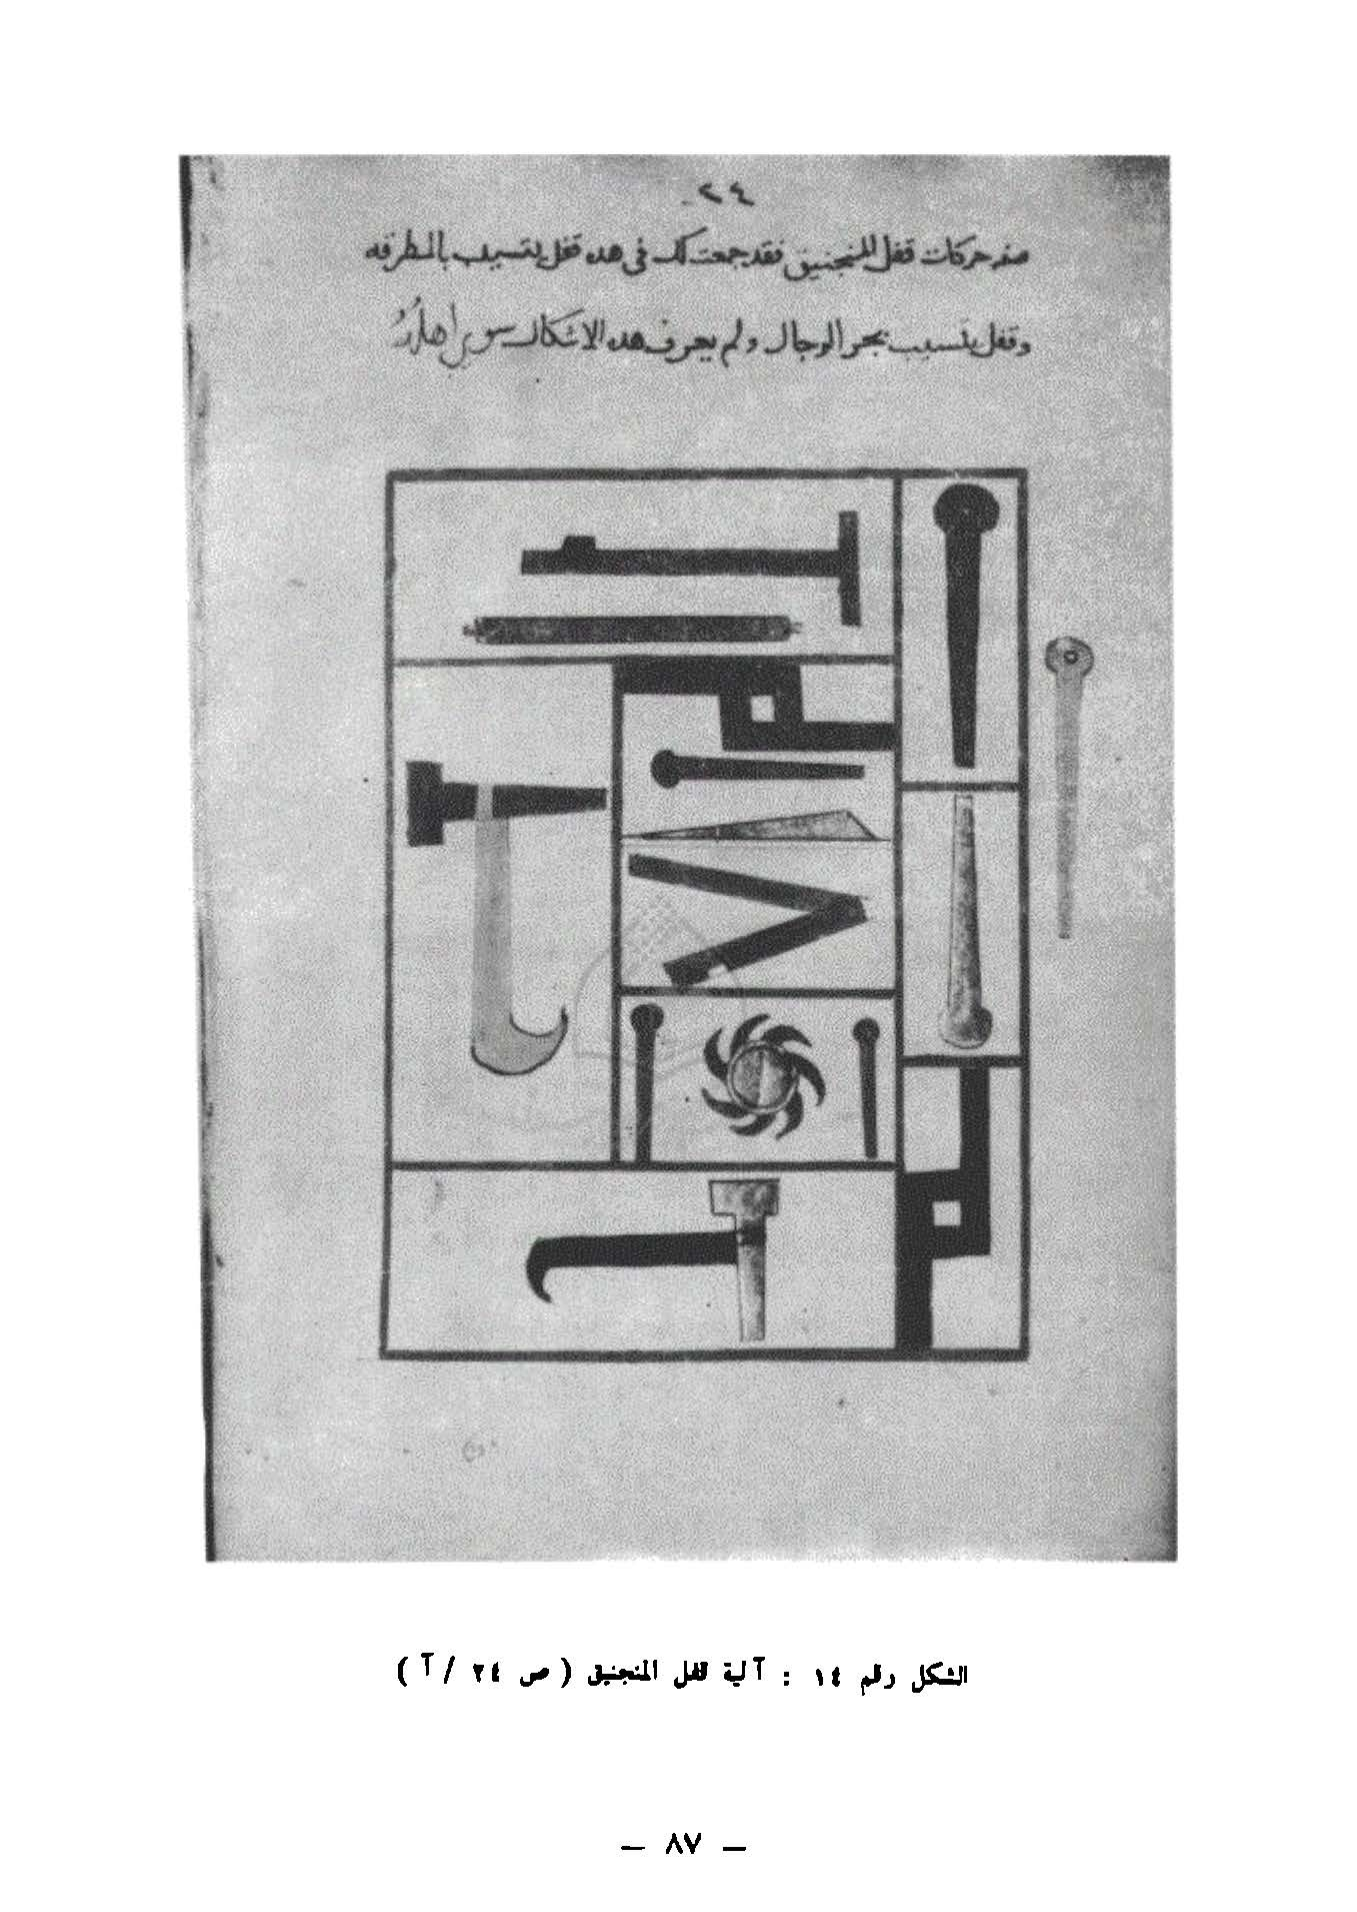 ٢٤
صفه حركات قفل المنجنيق فقد جمعت لك في هده قفل يتسيب بالمطرقه
وقفل يتسيب بجر الرجال ولم يعرف هده الاشكال سوى اهل
الشكل رقم ١٤ : آلية قفل المنجنيق ( ص ٢٤ / آ )
— ٨٧ —